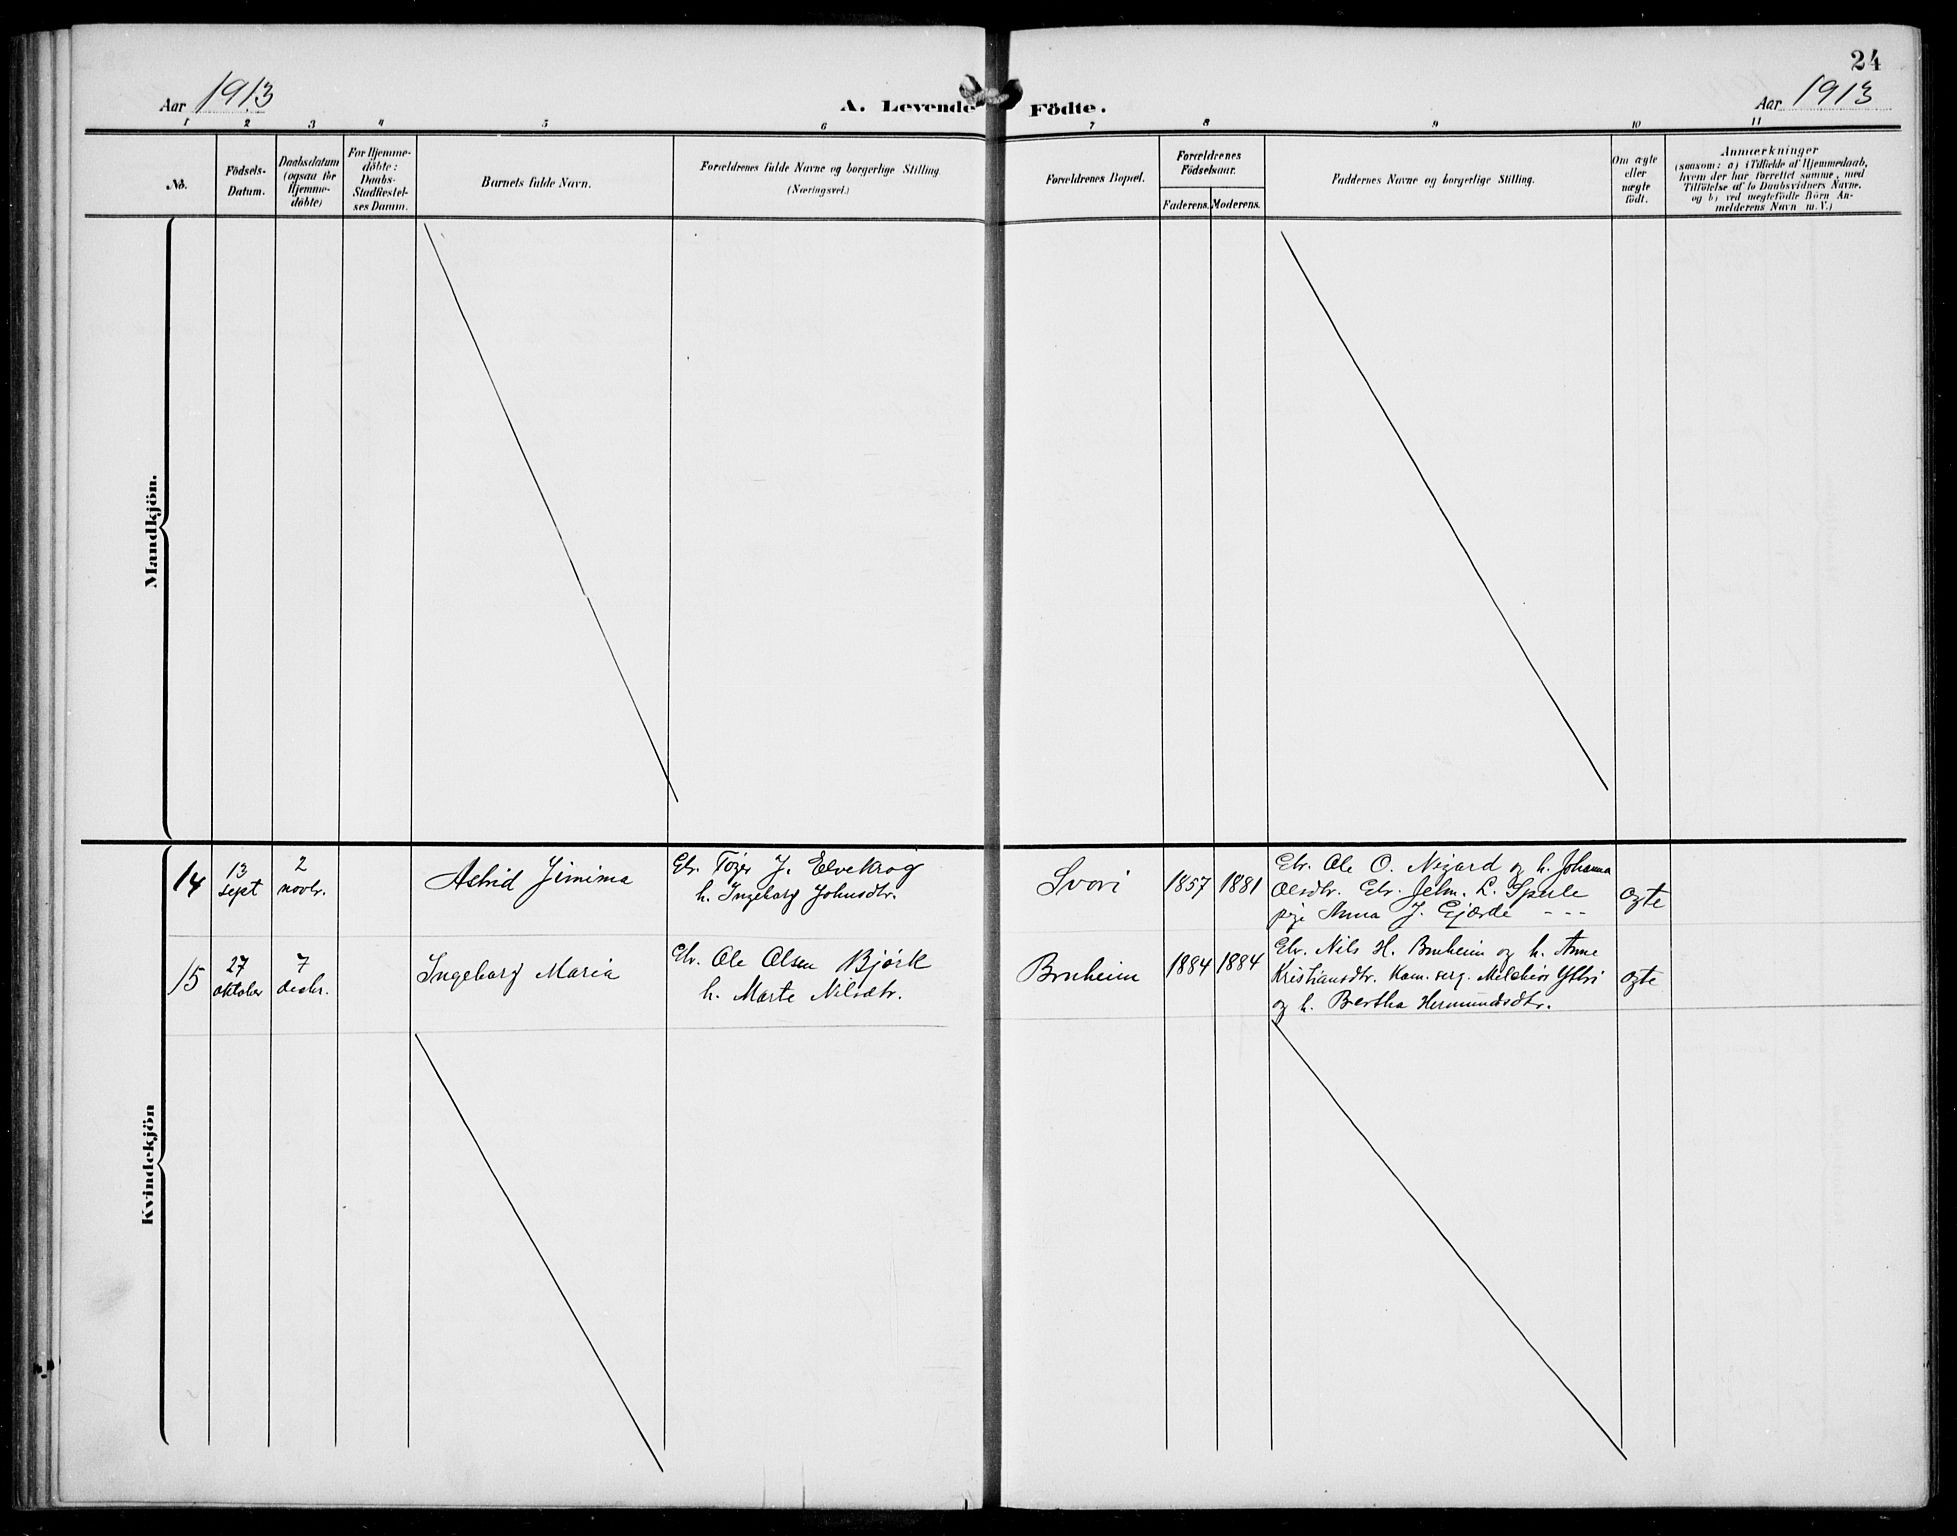 24
Aar 1913
A. Levende Födte.
Aar 1913
1 2 3 4 5 6 7 8 9 10 11
No.
Födsels-
Datum.
Daabsdatum
(ogsaa för
Hjemme-
döbte)
For Hjemme-
döbte:
Daabs-
Stadfestel-
ses Datum.
Barnets fulde Navn.
Forældrenes fulde Navne og borgerlige Stilling
(Næringsvei.)
Forældrenes Bopæl.
Forældrenes
Födselsaar.
Faderens. Moderens.
Faddernes Navne og borgerlige Stilling.
Om ægte
eller
uægte
födt.
Anmærkninger
(saasom: a) i Tilfælde af Hjemmedaab,
hvem der har forrettet samme, med
Tilföielse af to Daabsvidners Navne,
og b) ved uægtefödte Börn An-
melderens Navn m. V.)
Mandkjön.
Kvindekjön
14
13
sept
2
novbr.
Astrid Jimima
Gbr. Tøger J. Elvekrog
h. Ingeborg Johnsdtr.
Svori
1857
1881
Gbr. Ole O. Nigard og h. Johanna
Olsdtr. Gbr. Jehn. L. Sperle
pige Anna J. Gjærde - - -
ægte
15
27
oktober
7
decbr.
Ingeborg Maria
Gbr. Ole Olsen Bjørk
h. Marte Nilsdtr.
Bruheim
1884
1884
Gbr. Nils H. Bruheim og h. Anne
Kristiansdtr. Kom. serg. Melchior Ytri
og h. Bertha Hermundsdtr.
ægte